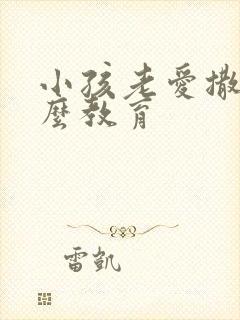 小孩老愛撒
麼教育
雷凱